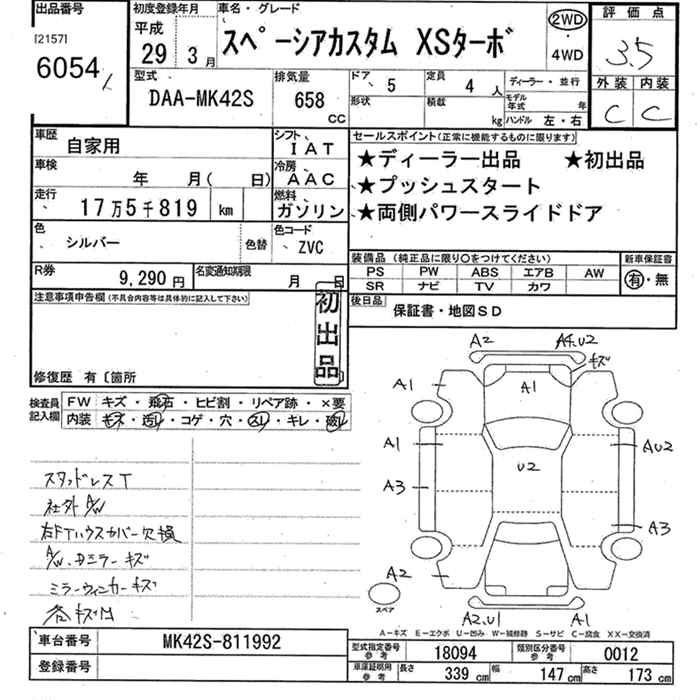 出品番号
[2157]
6054
初度登録年月
平成
29 3月
車名・グレード
スペーシアカスタム XSターボ
2WD
4WD
評価点
3.5
外装 内装
C C
型式
DAA-MK42S
排気量
658
CC
ドア 5
定員 4人
形状
積載 kg
ディーラー・並行
モデル年式 年
ハンドル 左・右
車歴 自家用
シフト IAT
車検 年 月( 日)
冷房 AAC
走行 17万5千819 km
燃料 ガソリン
色 シルバー
色替
色コード ZVC
R券 9,290円
名変通知期限 月 日
セールスポイント(正常に機能するものに限ります)
★ディーラー出品 ★初出品
★プッシュスタート
★両側パワースライドドア
装備品(純正品に限り○をつけてください)
PS PW ABS エアB AW
SR ナビ TV カワ
新車保証書
有・無
後日品 保証書・地図SD
注意事項申告欄(不具合内容等は具体的に記入して下さい)
初出品
修復歴 有〔箇所
検査員記入欄
FW キズ・飛石・ヒビ割・リペア跡・×要
内装 キズ・汚レ・コゲ・穴・スレ・キレ・破レ
スタッドレスT
社外A/W
右FTハウスカバー欠損
A/W、ドミラーキズ
ミラーウィンカーキズ
各キズ凹
A2
A4.U2
キズ
A1
A1
A1
AU2
U2
A3
A3
A2
A2.U1
A1
スペア
A-キズ E-エクボ U-凹み W-補修跡 S-サビ C-腐食 XX-交換済
車台番号 MK42S-811992
登録番号
型式指定番号 参考 18094
類別区分番号 参考 0012
車庫証明用 参考 長さ 339cm 幅 147cm 高さ 173cm